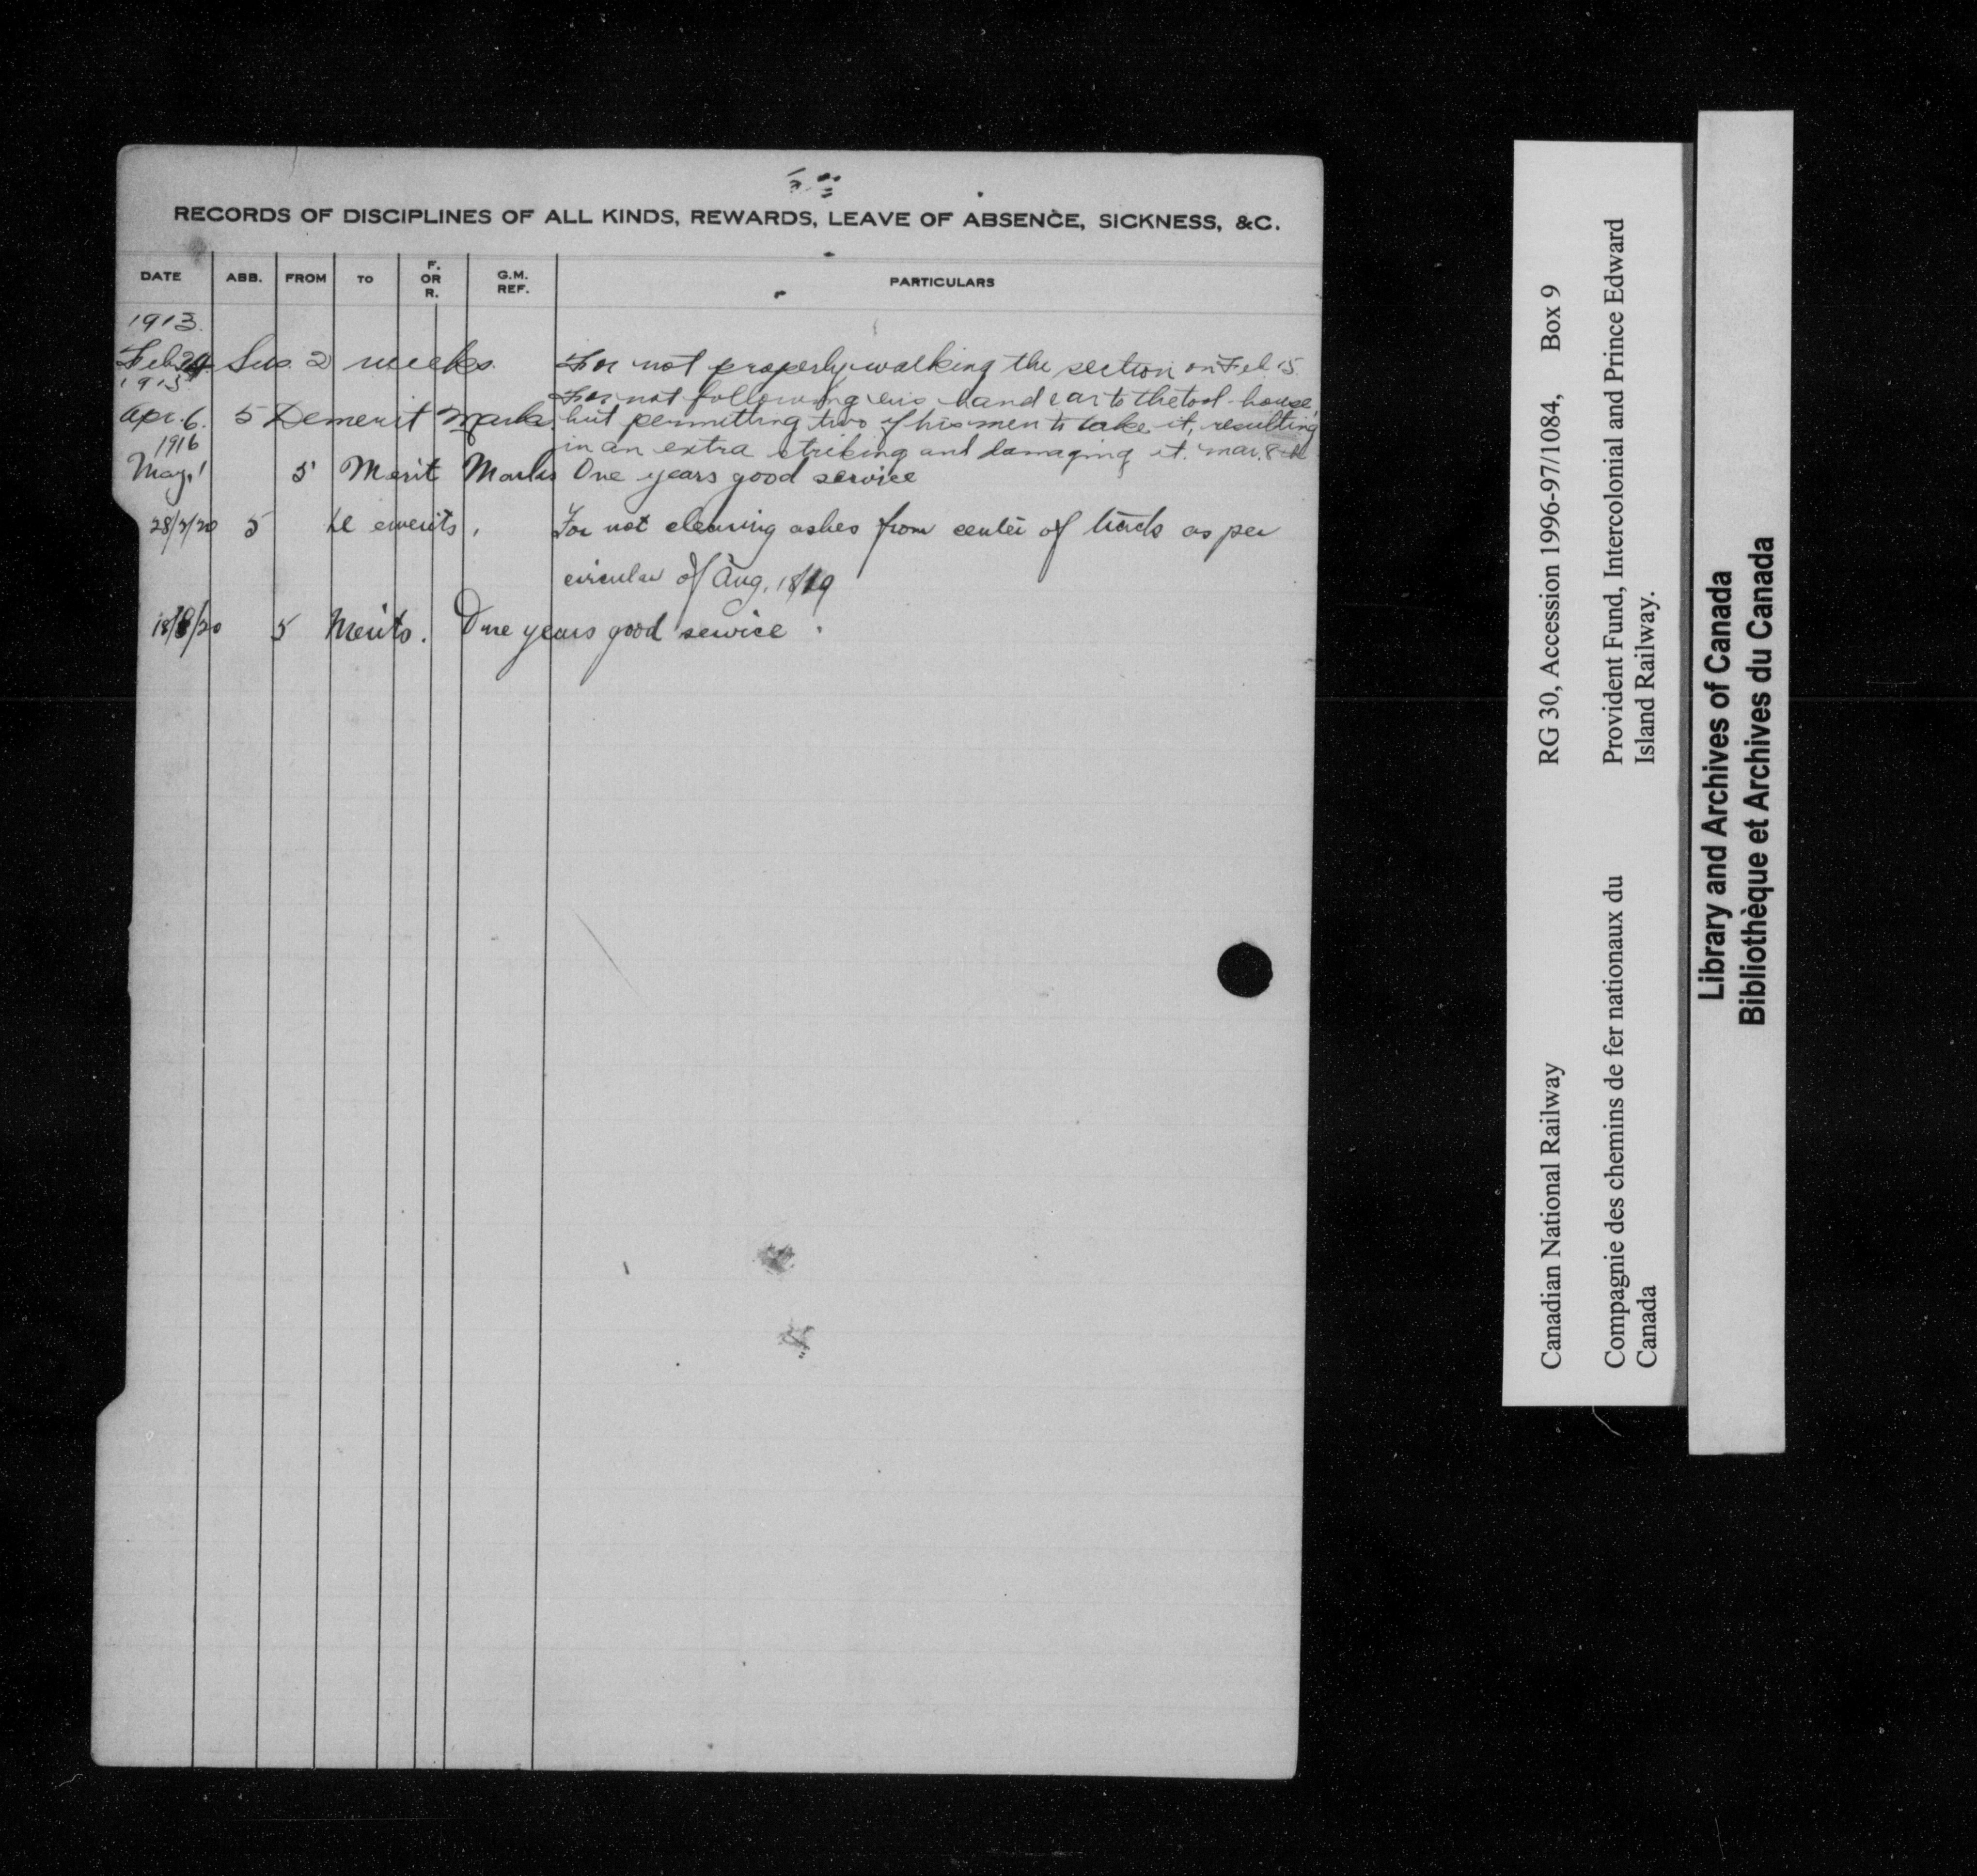 RECORDS OF DISCIPLINES OF ALL KINDS, REWARDS, LEAVE OF ABSENCE, SICKNESS, &C.
DATE ABB. FROM TO F. OR R. G.M. REF. PARTICULARS
1913.
Feb 24 Sus. 2 weeks. For not properly walking the section on Feb. 15.
1915 For not following his hand car to the tool-house,
Apr. 6. 5 Demerit Marks. but permitting two of his men to take it, resulting
1916 in an extra striking and damaging it. Mar. 8
May 1 5 Merit Marks One years good service
5 De emerits. For not cleaning ashes from center of tracks as per
circular of Aug. 18/19
18/8/20 5 Merits. One years good service.
Canadian National Railway RG 30, Accession 1996-97/1084, Box 9
Compagnie des chemins de fer nationaux du Canada
Provident Fund, Intercolonial and Prince Edward Island Railway.
Library and Archives of Canada
Bibliothèque et Archives du Canada